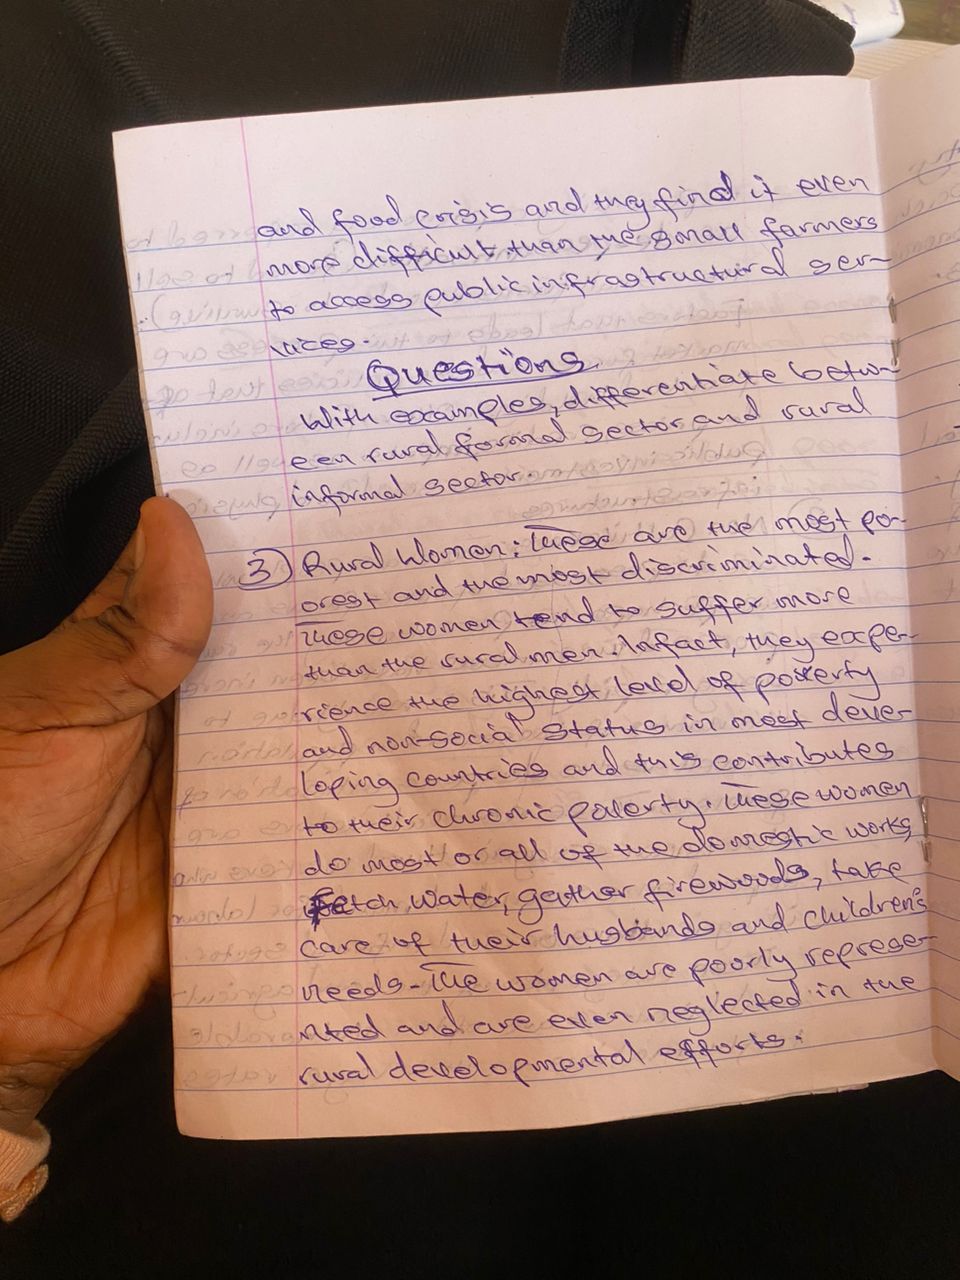 and food crisis and they find it even
more difficult than the small farmers
to access public infrastructural ser-
vices.
Questions
With examples, differentiate betw-
een rural formal sector and rural
informal sector.
3) Rural Women: These are the most po-
orest and the most discriminated.
These women tend to suffer more
than the rural men. Infact, they expe-
rience the highest level of poverty
and non-social status in most deve-
loping countries and this contributes
to their chronic poverty. These women
do most or all of the domestic works,
fetch water, gather firewoods, take
care of their husbands and children's
needs. The women are poorly represe-
nted and are even neglected in the
rural developmental efforts.